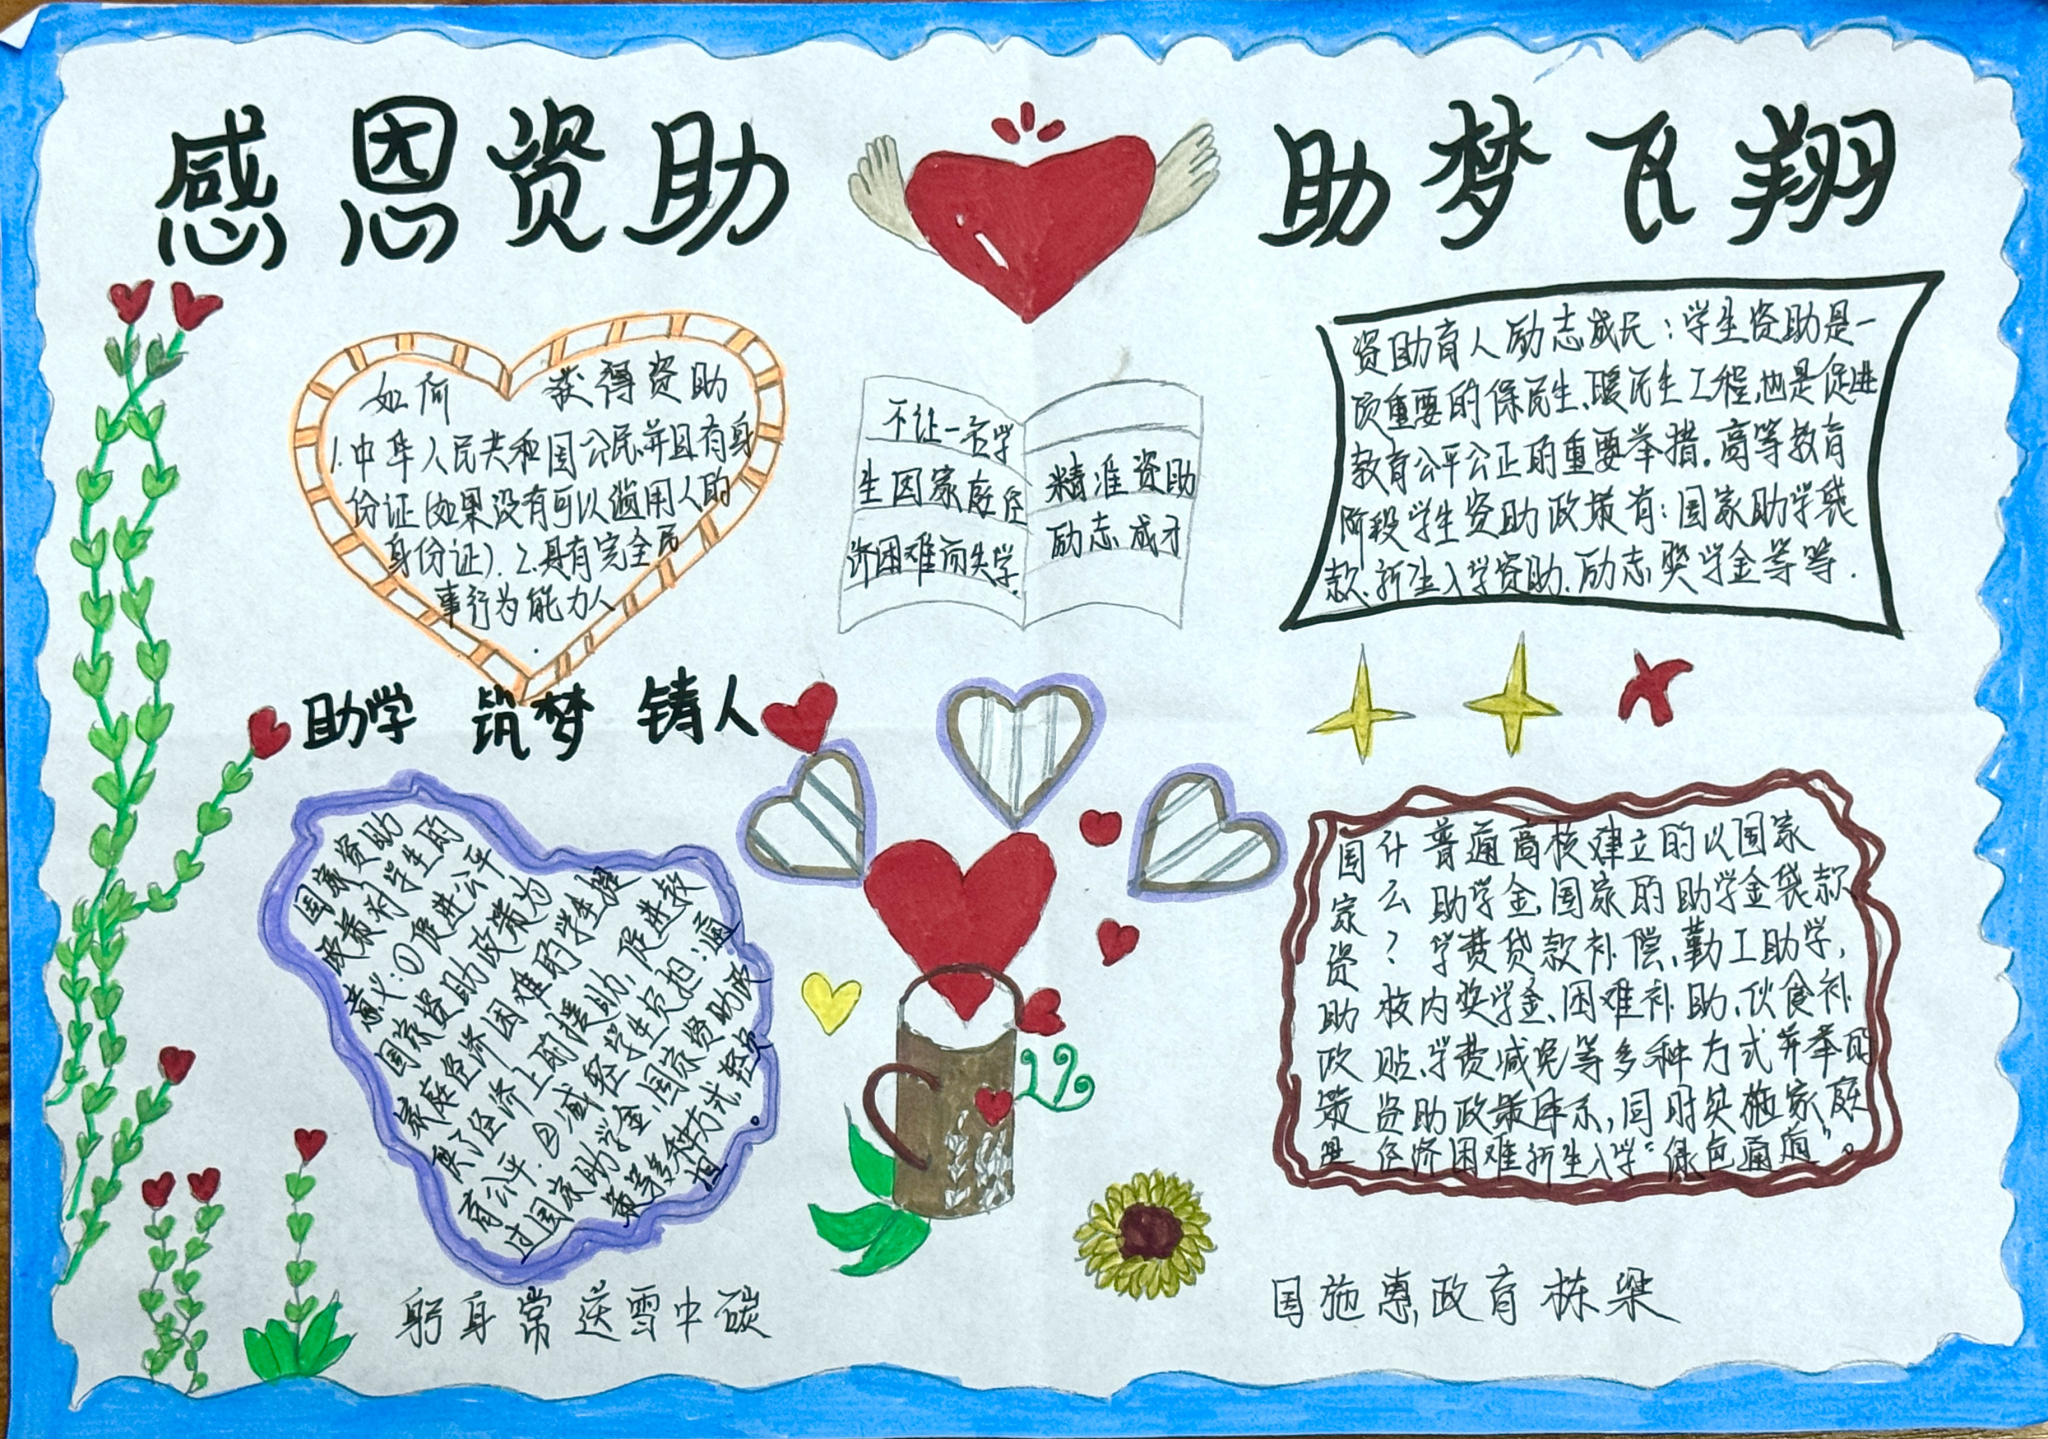 感恩资助
助梦飞翔
如何 获得资助
1.中华人民共和国公民,并且有身
份证(如果没有可以适用人的
身份证). 2.具有完全民
事行为能力人
.
不让一名学
生因家庭经
济困难而失学.
精准资助
励志成才
资助育人励志成民:学生资助是一
项重要的保民生、暖民生工程,也是促进
教育公平公正的重要举措.高等教育
阶段学生资助政策有:国家助学贷
款、新生入学资助、励志奖学金等等.
助学 筑梦 铸人
国家资助
政策对学生的
意义:①促进公平
国家资助政策为
家庭经济困难的学生提
供了经济上的援助,促进教
育公平.②减轻学生负担:通
过国家助学金、国家资助政
策等多种方式,轻负
担.
国家资助政策是
什么?
普通高校建立的以国家
助学金、国家的助学金贷款
学费贷款补偿、勤工助学,
校内奖学金、困难补助、伙食补
贴、学费减免等多种方式并举的
资助政策体系,同时实施家庭
经济困难新生入学"绿色通道"。
躬身常送雪中碳
国施惠政育栋梁